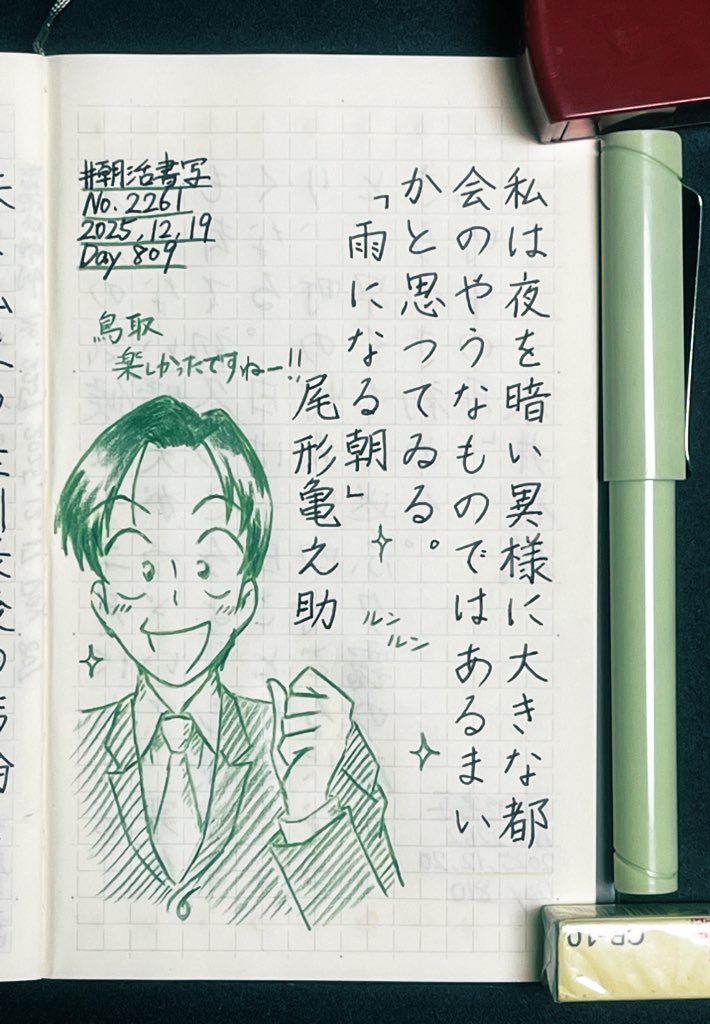 私は夜を暗い異様に大きな都
会のやうなものではあるまい
かと思つてゐる。
「雨になる朝」
尾形亀之助
#朝活書写
No. 2261
2025.12.19
Day 809
鳥取
楽しかったですねー!!
ルン
ルン
CB-10